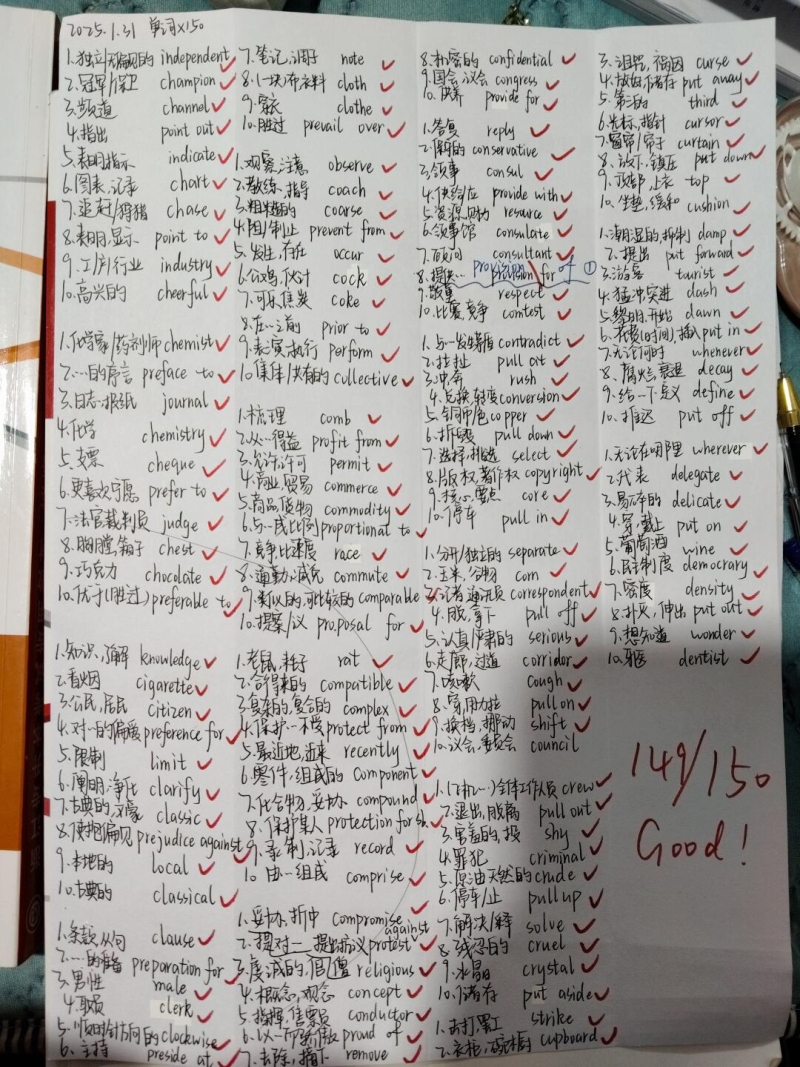 2025.1.31 单词×150
1.独立/无偏见的 independent
2.冠军/保卫 champion
3.频道 channel
4.指出 point out
5.表明,指示 indicate
6.图表,记录 chart
7.追赶/狩猎 chase
8.表明,显示 point to
9.工/产/行业 industry
10.高兴的 cheerful
1.化学家/药剂师 chemist
2.…的序言 preface to
3.日志,报纸 journal
4.化学 chemistry
5.支票 cheque
6.更喜欢,宁愿 prefer to
7.法官,裁判员 judge
8.胸膛,箱子 chest
9.巧克力 chocolate
10.优于(胜过) preferable to
1.知识,了解 knowledge
2.香烟 cigarette
3.公民,居民 citizen
4.对…的偏爱 preference for
5.限制 limit
6.阐明,净化 clarify
7.古典的,文豪 classic
8.使抱偏见 prejudice against
9.本地的 local
10.古典的 classical
1.条款,从句 clause
2.…的准备 preparation for
3.男性 male
4.职员 clerk
5.顺时针方向的 clockwise
6.主持 preside at
7.笔记,调子 note
8.(一块)布,衣料 cloth
9.穿衣 clothe
10.胜过 prevail over
1.观察,注意 observe
2.教练,指导 coach
3.粗糙的 coarse
4.阻/制止 prevent from
5.发生,存在 occur
6.公鸡,伙计 cock
7.可乐,焦炭 coke
8.在…之前 prior to
9.表演,执行 perform
10.集体/共有的 collective
1.梳理 comb
2.从…得益 profit from
3.允许,许可 permit
4.商业,贸易 commerce
5.商品,货物 commodity
6.与…成比例 proportional to
7.竞争,比速度 race
8.通勤,减免 commute
9.类似的,可比较的 comparable
10.提案/议 proposal for
1.老鼠,耗子 rat
2.合得来的 compatible
3.复杂的,复合的 complex
4.保护…不受 protect from
5.最近地,近来 recently
6.零件,组成的 component
7.化合物,妥协 compound
8.保护某人 protection for sb.
9.录制,记录 record
10.由…组成 comprise
1.妥协,折中 compromise
2.提对…提出抗议 protest against
3.虔诚的,僧 religious
4.概念,观念 concept
5.指挥,售票员 conductor
6.以…而骄傲 proud of
7.去除,摘下 remove
8.机密的 confidential
9.国会,议会 congress
10.供养 provide for
1.答复 reply
2.保守的 conservative
3.领事 consul
4.供给/应 provide with
5.资源,财力 resource
6.领事馆 consulate
7.顾问 consultant
8.提供… provision for
provision of ①
9.敬重 respect
10.比赛,竞争 contest
1.与…发生矛盾 contradict
2.拉扯 pull at
3.冲,奔 rush
4.兑换,转变 conversion
5.铜,铜色 copper
6.拆毁 pull down
7.选择,挑选 select
8.版权,著作权 copyright
9.核心,要点 core
10.停车 pull in
1.分开/独立的 separate
2.玉米,谷物 corn
3.记者,通讯员 correspondent
4.脱,拿下 pull off
5.认真/严肃的 serious
6.走廊,过道 corridor
7.咳嗽 cough
8.穿,用力拉 pull on
9.换档,挪动 shift
10.议会,委员会 council
1.(飞机…)全体工作人员 crew
2.退出,脱离 pull out
3.害羞的,投 shy
4.罪犯 criminal
5.原油,天然的 crude
6.停车/止 pull up
7.解决/释 solve
8.残忍的 cruel
9.水晶 crystal
10.储存 put aside
1.击打,罢工 strike
2.衣柜,碗柜 cupboard
3.诅咒,祸因 curse
4.放好,储存 put away
5.第三的 third
6.光标,指针 cursor
7.窗帘/帘子 curtain
8.放下,镇压 put down
9.顶部,上衣 top
10.坐垫,缓和 cushion
1.潮湿的,抑制 damp
2.提出 put forward
3.游客 tourist
4.猛冲,突进 dash
5.黎明,开始 dawn
6.花费(时间),插入 put in
7.无论何时 whenever
8.腐烂,衰退 decay
9.给…下定义 define
10.推迟 put off
1.无论在哪里 wherever
2.代表 delegate
3.易碎的 delicate
4.穿,戴上 put on
5.葡萄酒 wine
6.民主制度 democrary
7.密度 density
8.扑灭,伸出 put out
9.想知道 wonder
10.牙医 dentist
149/150
Good!